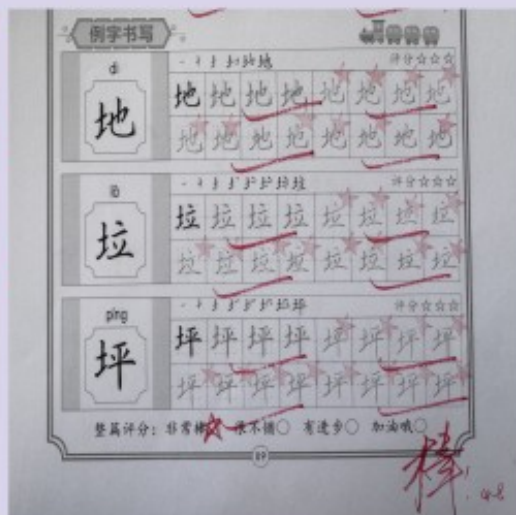 例字书写
dì
地
评分☆☆☆
地地地地地地地地
地地地地地地地地
lā
垃
评分☆☆☆
垃垃垃垃垃垃垃垃
垃垃垃垃垃垃垃垃
píng
坪
评分☆☆☆
坪坪坪坪坪坪坪坪
坪坪坪坪坪坪坪坪
整篇评分：非常棒 很不错○ 有进步○ 加油哦○
89
棒！